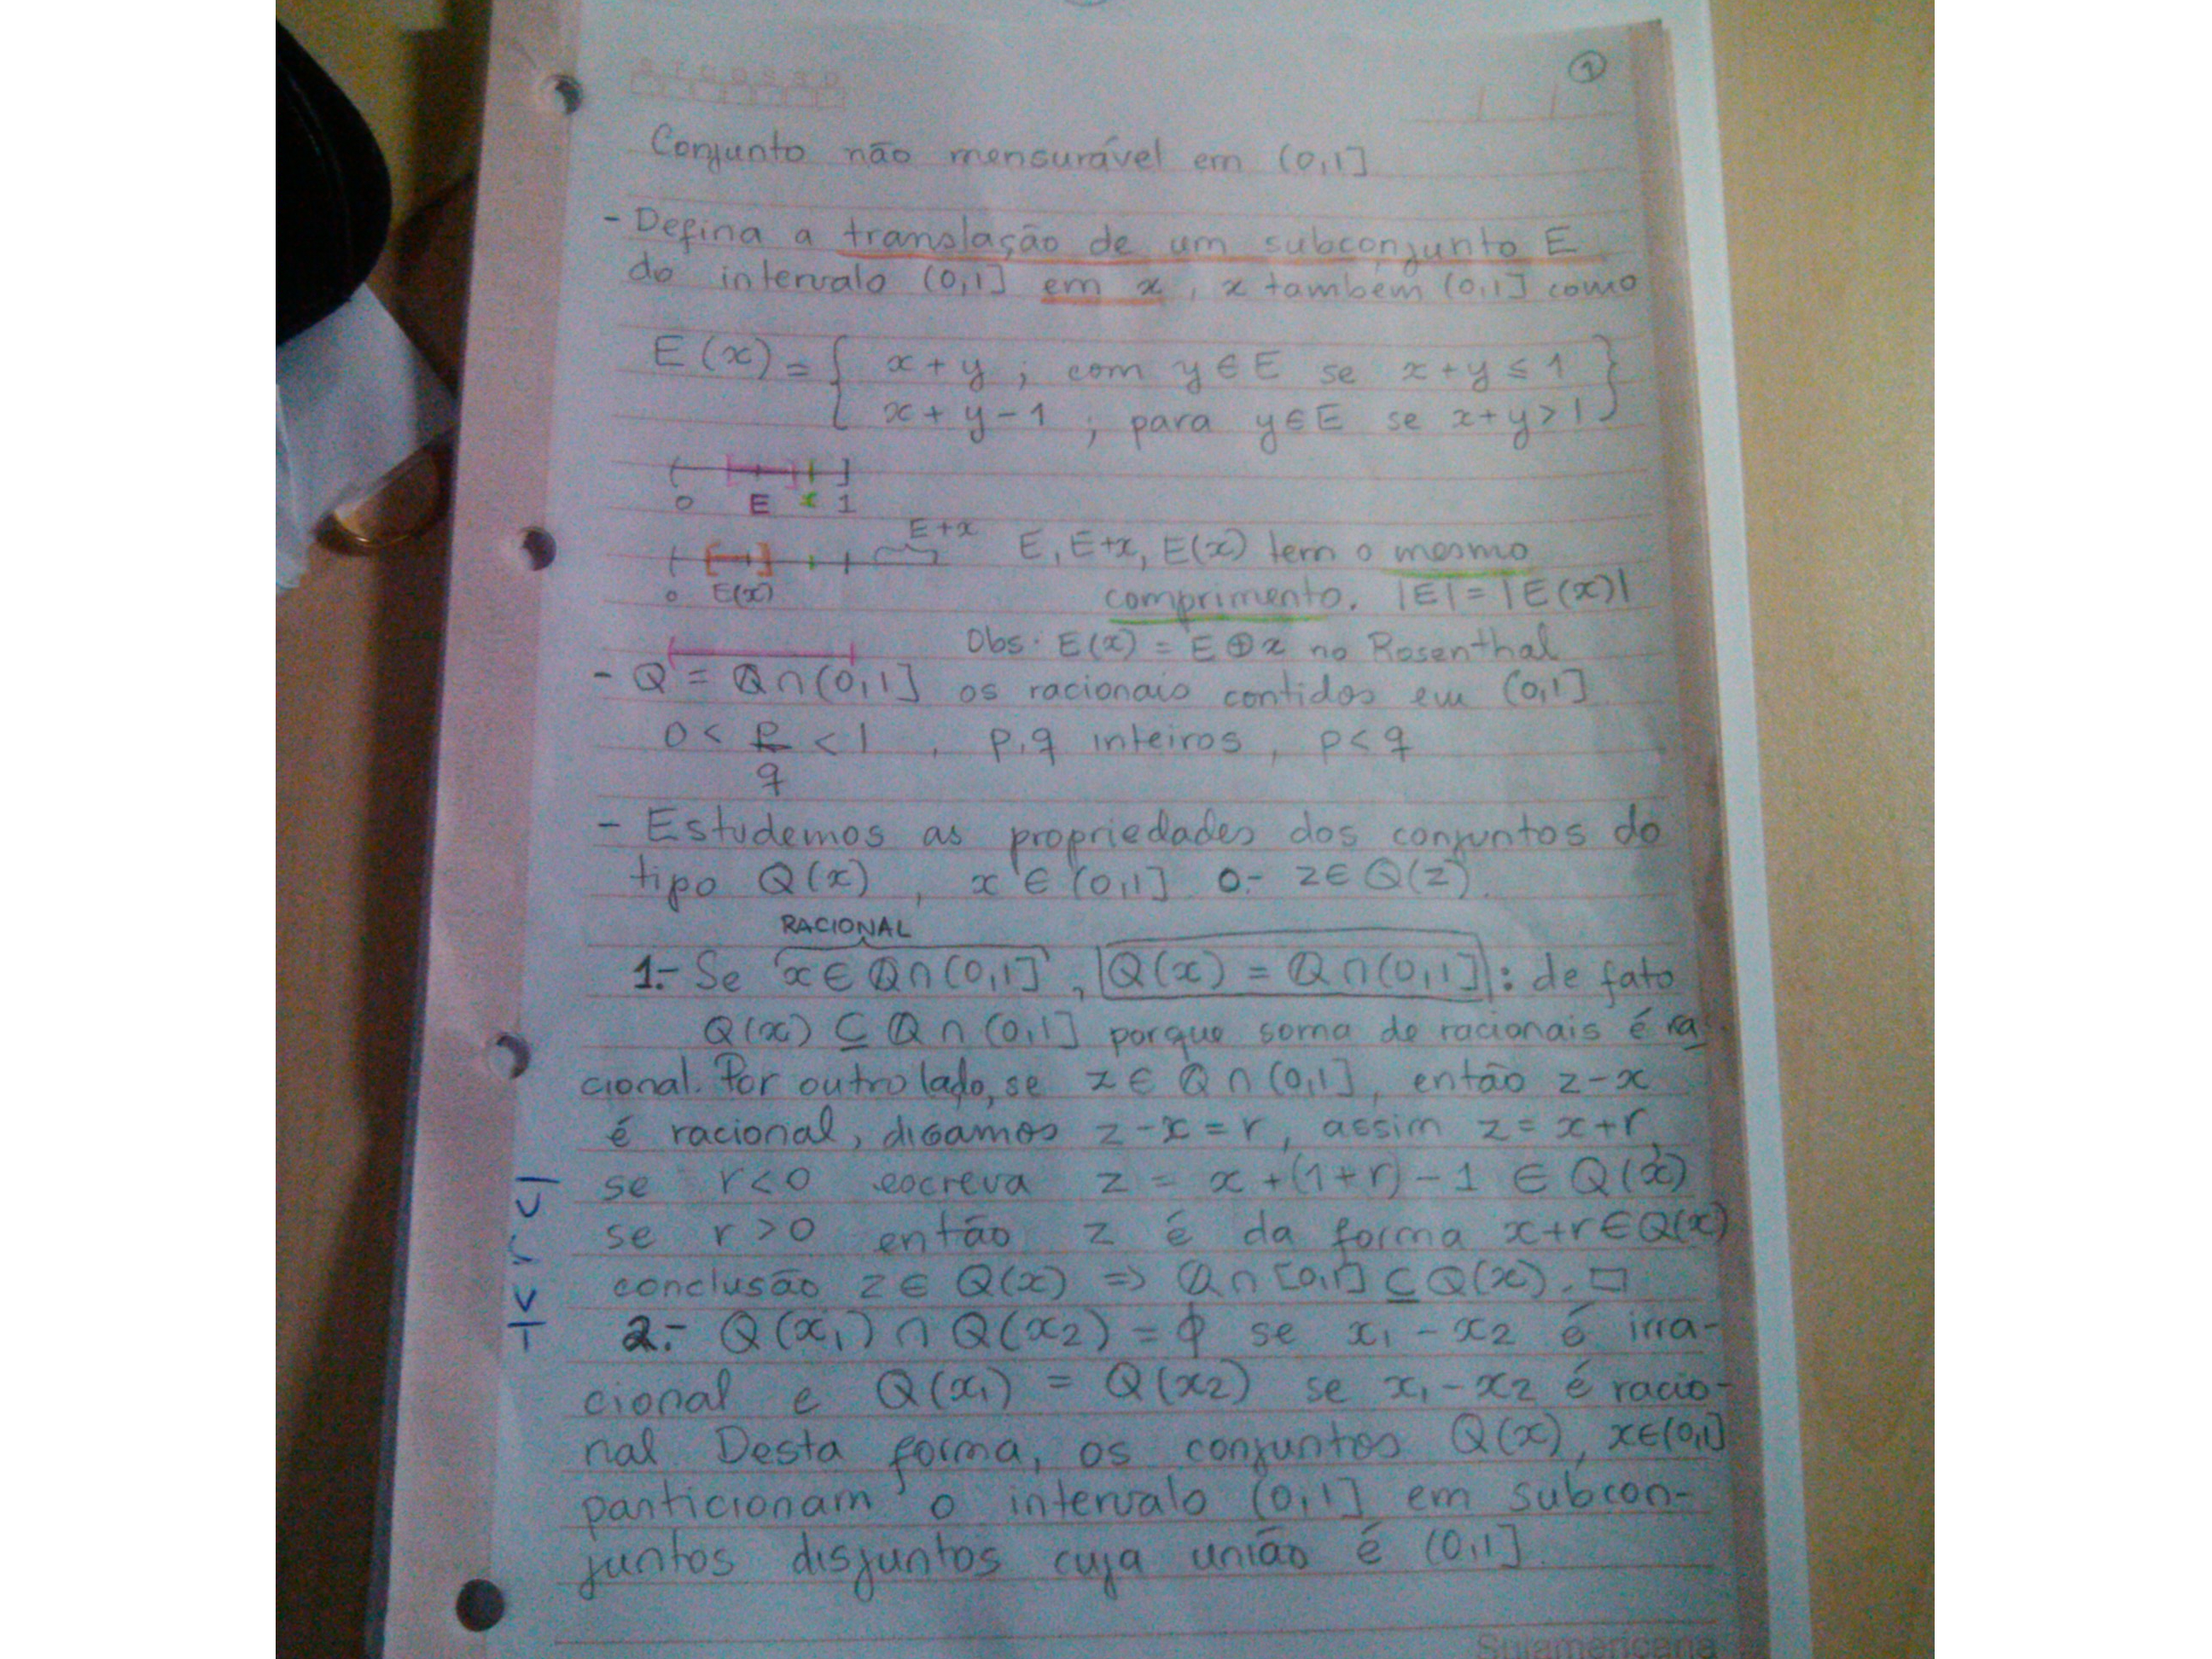 S T Q Q S S D
1
Conjunto não mensurável em (0,1]
- Defina a translação de um subconjunto E
do intervalo (0,1] em x, x também (0,1] como
E(x) = { x + y ; com y ∈ E se x + y ≤ 1 }
x + y - 1 ; para y ∈ E se x + y > 1
0 E x 1
E+x
E, E+x, E(x) tem o mesmo
0 E(x) comprimento. |E| = |E(x)|
Obs. E(x) = E ⊕ x no Rosenthal
- Q = ℚ ∩ (0,1] os racionais contidos em (0,1]
0 < p/q < 1 , p,q inteiros, p < q
- Estudemos as propriedades dos conjuntos do
tipo Q(x), x ∈ (0,1] 0.- z ∈ Q(z).
RACIONAL
1.- Se x ∈ ℚ ∩ (0,1], Q(x) = ℚ ∩ (0,1] : de fato
Q(x) ⊆ ℚ ∩ (0,1] porque soma de racionais é ra-
cional. Por outro lado, se z ∈ ℚ ∩ (0,1], então z-x
é racional, digamos z-x = r, assim z = x+r,
se r < 0 escreva z = x + (1+r) - 1 ∈ Q(x)
se r > 0 então z é da forma x+r ∈ Q(x)
conclusão z ∈ Q(x) ⇒ ℚ ∩ [0,1] ⊆ Q(x). □
-1 < r < 1
2.- Q(x1) ∩ Q(x2) = ϕ se x1 - x2 é irra-
cional e Q(x1) = Q(x2) se x1 - x2 é racio-
nal Desta forma, os conjuntos Q(x), x∈(0,1]
particionam o intervalo (0,1] em subcon-
juntos disjuntos cuja união é (0,1].
Sulamericana